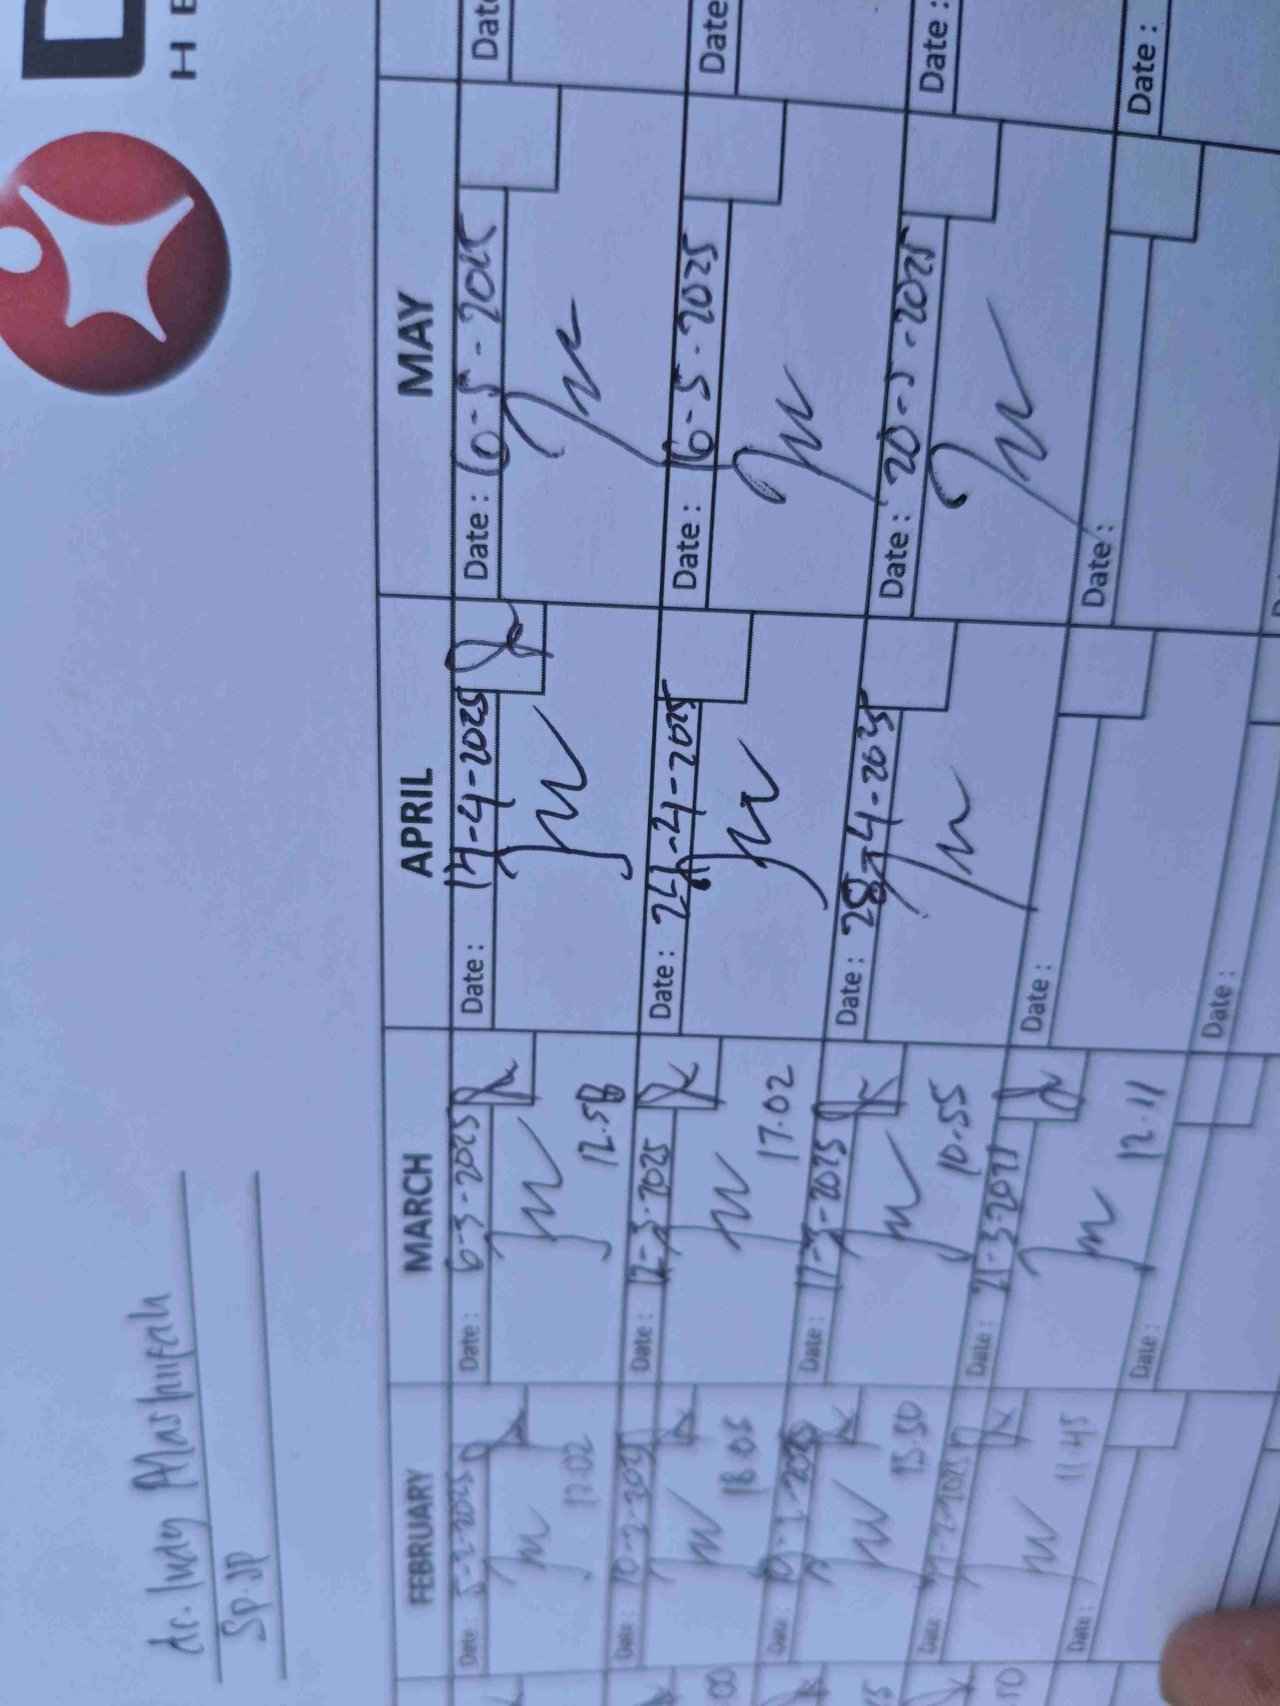 HE
dr. Indry Masnifah
Sp.JP
FEBRUARY MARCH APRIL MAY
Date: 5-2-2025
17.02
Date: 6-3-2025
12.58
Date: 17-4-2025
Date: 10-5-2025
Date:
Date: 10-2-2025
18.05
Date: 12-3-2025
17.02
Date: 24-4-2025
Date: 16-5-2025
Date:
Date:
15.50
Date: 17-3-2025
10.55
Date: 28-4-2025
Date: 20-5-2025
Date:
Date:
11.45
Date: 21-3-2025
12.11
Date:
Date:
Date:
Date:
Date:
Date: